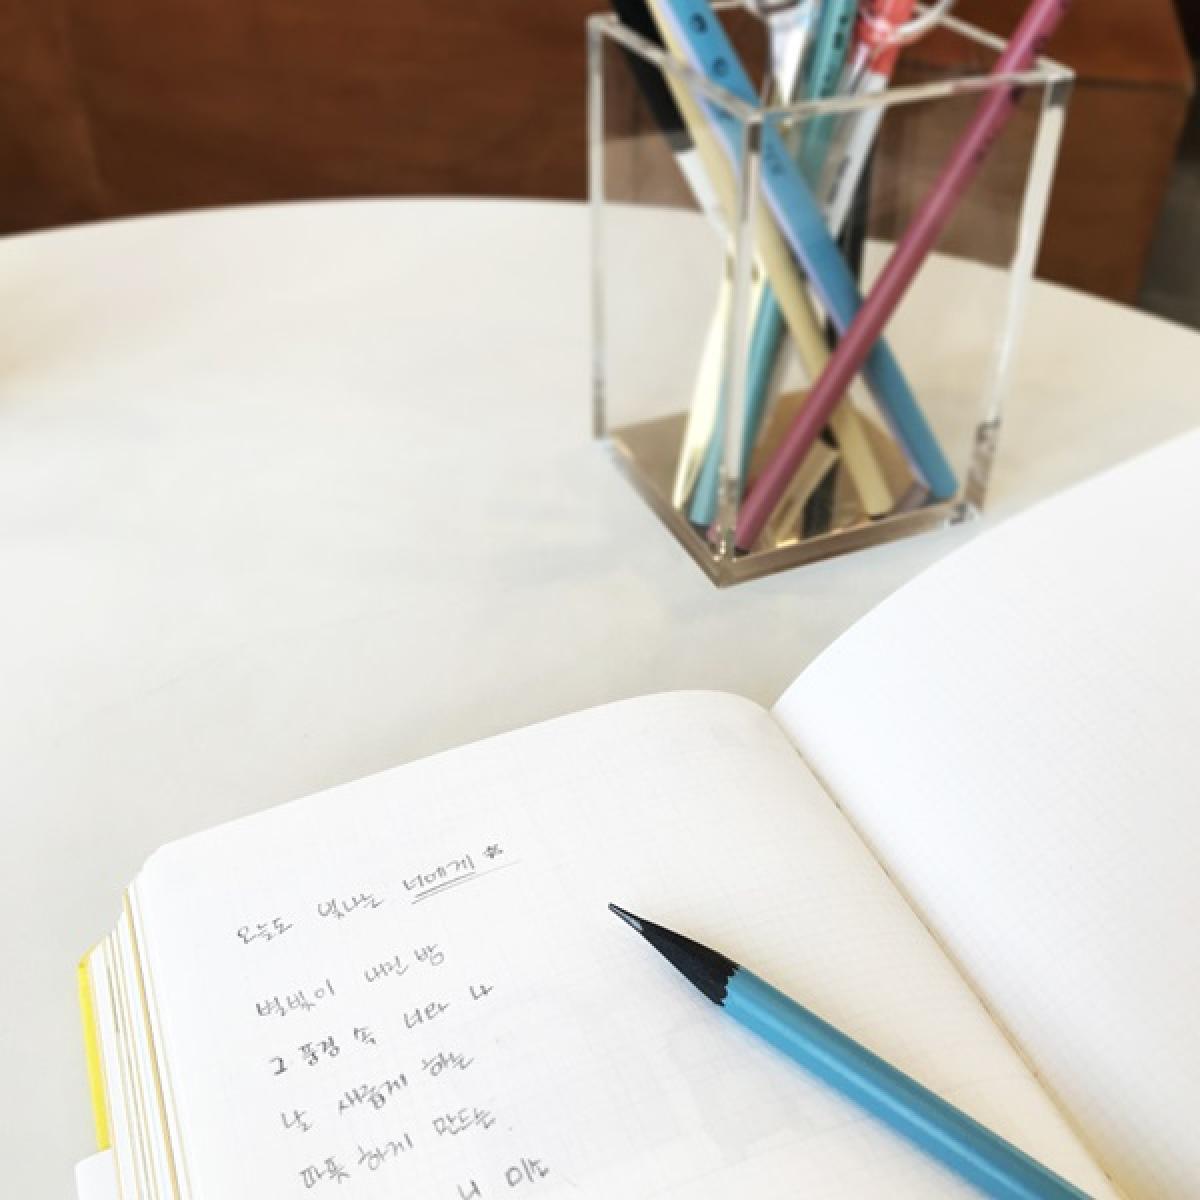 오늘도 빛나는 너에게 *
별빛이 내린 밤
그 풍경 속 너와 나
날 새롭게 하는
따뜻하게 만드는
너 미소